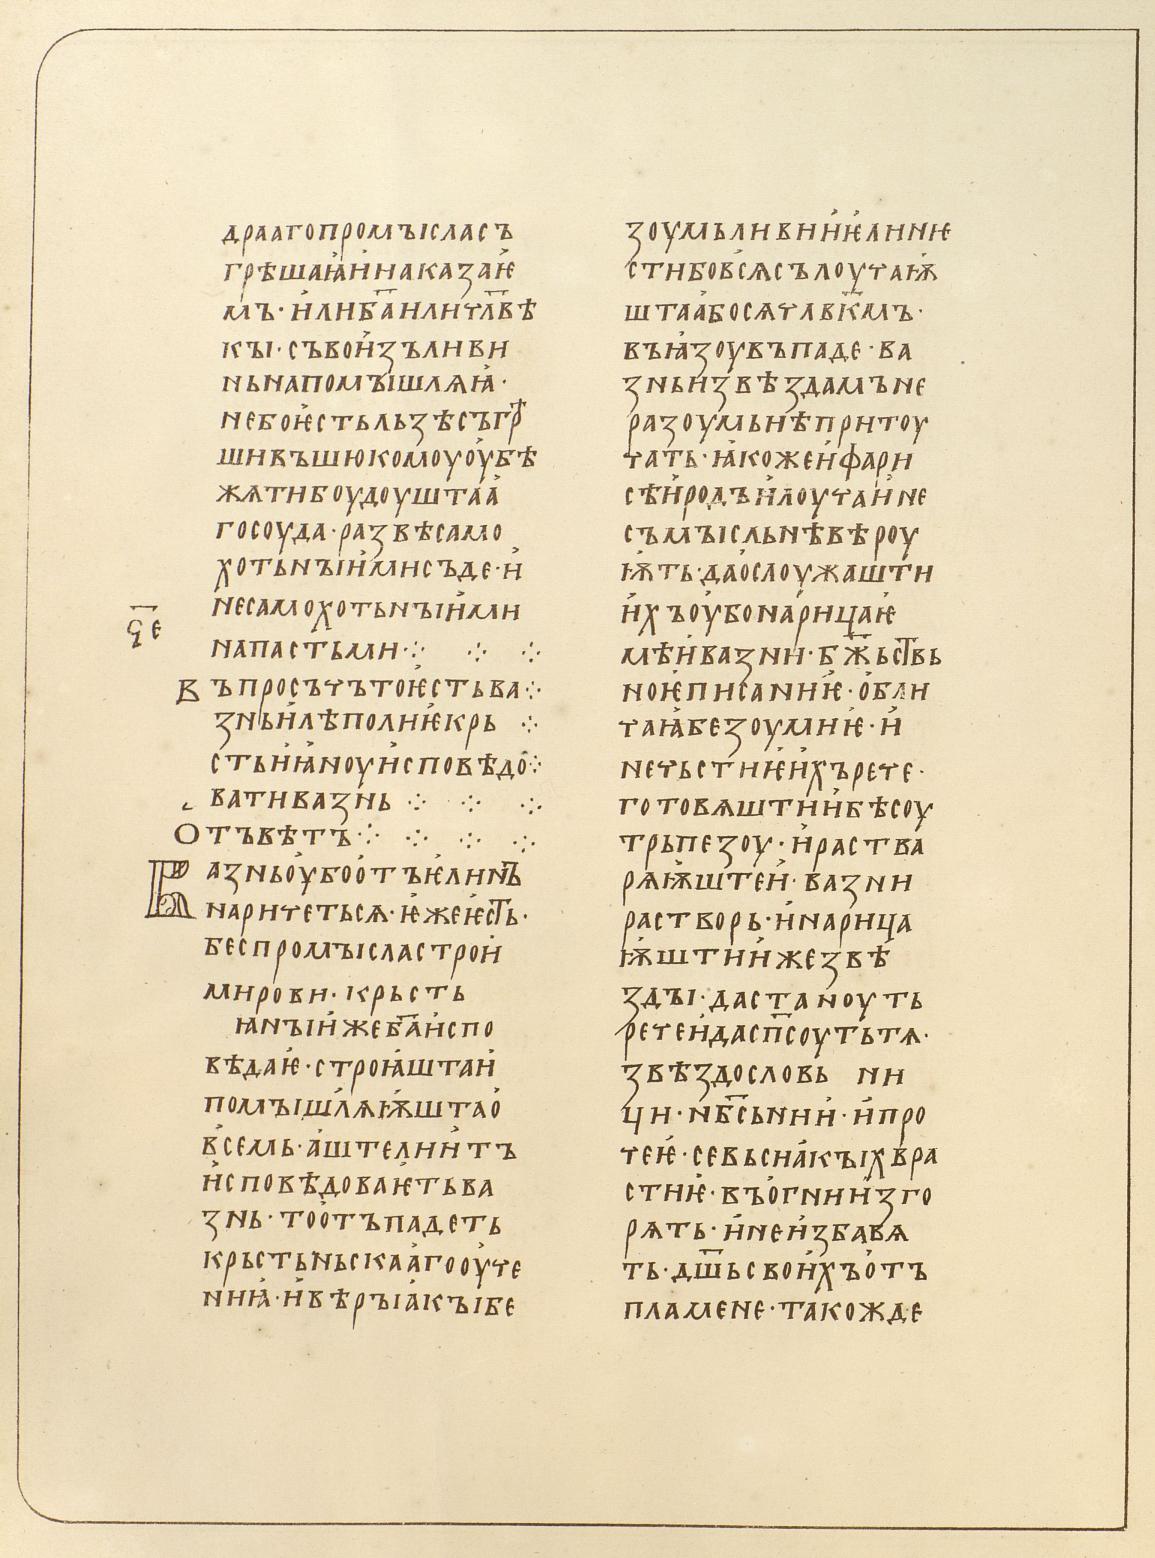 драагопромꙑсласъ
грѣшаꙗ҅и҅наказаѥ҅
мъ· и҅либа҃или҅чл҃вѣ
кꙑ· съвои҅зъливи
ньнапомꙑшлѧꙗ҅·
небоѥ҅стьльзѣсъгрѣ
шивъшюкомоуоу҅бѣ
жѧтибоудоуштаа҅
госоуда· развѣсамо
хотьнꙑи҅мисъде· и҅
несамохотьнꙑи҅ми
напастьми·჻ ჻ ჻
ч҃е
Въпросъчътоѥ҅стьва჻
зньи҅лѣполиѥ҅крь ჻
стьи҅ꙗ҅ноуи҅сповѣдо჻
вативазнь ჻ ჻ ჻
Отъвѣтъ ჻ ჻ ჻ ჻
Вазньоу҅боо҅тъѥ҅линъ
наричетьсѧ· ѥ҅жеѥ҅сть·
беспромꙑсластрои҅
мирови· крьсть
ꙗнꙑи҅жеба҃и҅спо
вѣдаѥ҅· строꙗ҅штаи҅
помꙑшлѧѭ҅штао҅
всемь· а҅штелии҅тъ
и҅сповѣдоваѥ҅тьва
знь· тоо҅тъпадеть
крьстьньскаа҅гооу҅че
ниꙗ҅· и҅вѣрꙑа҅кꙑбе
зоумьливнии҅ѥ҅линиѥ
стибовсѧсълоучаѭ҅
штаа҅босѧчлвк҃мъ·
въꙗ҅зоувъпаде· ва
зньизвѣздамъне
разоумьнѣпричоу
чать· ꙗ҅кожеи҅фари
сѣи҅родъи҅лоучаи҅не
съмꙑсльнѣвѣроу
ѭ҅ть· дао҅слоужашти
и҅хъоу҅бонарицаѥ҅
мѣи҅вазни· бж҃ьствь
ноѥ҅писаниѥ҅· о҅бли
чаꙗ҅безоумиѥ҅· и҅
нечьстиѥ҅и҅хърече·
готовѧштии҅бѣсоу
трьпезоу· и҅раства
рѧѭ҅штеи҅· вазни
растворь· и҅нарица
ѭ҅штии҅жезвѣ
здꙑ· дастаноуть
речеи҅даспс҃оутьтѧ·
звѣздословь ни
ци· нб҃сьнии҅· и҅про
чеѥ҅· севьсиа҅кꙑхвра
стиѥ҅· въо҅гнии҅зго
рѧть· и҅неи҅збавѧ
ть· дш҃ьсвои҅хъо҅тъ
пламене· такожде